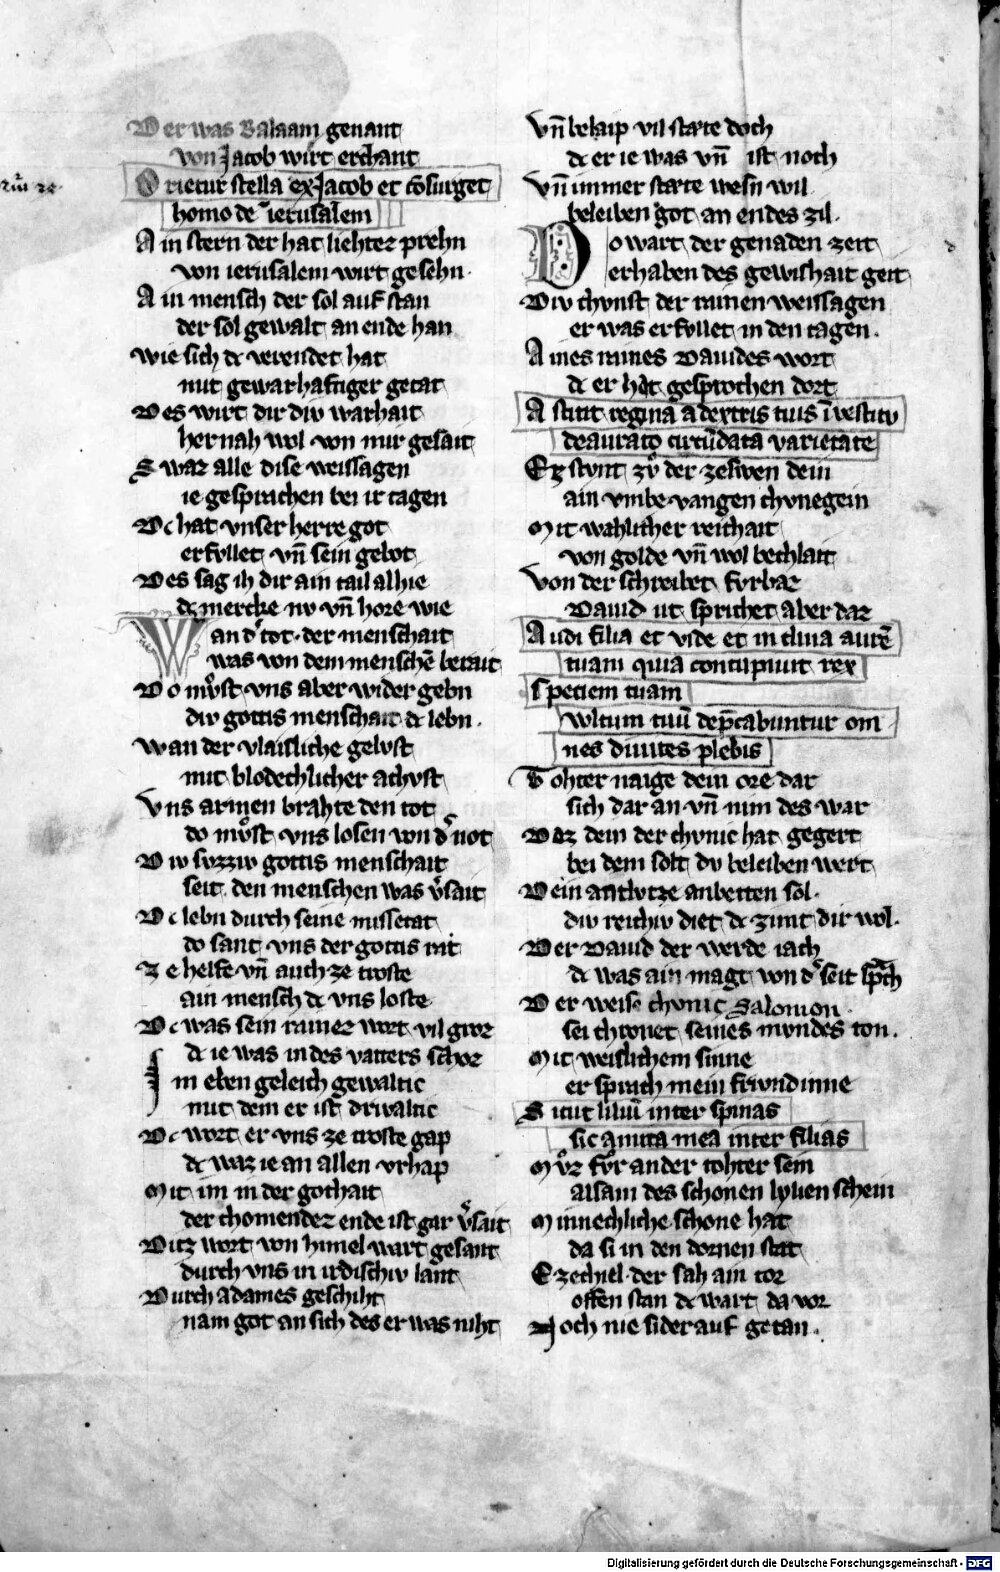 Der was Balaam genant
von Jacob wirt erchant
Orietur stella ex Jacob et cōsurget
homo de ierusalem
Ain stern der hat liehtez prehn
von ierusalem wirt gesehn·
Ain mensch der sol auf stan
der sol gewalt an ende han
wie sich dc verendet hat
mit gewarhaftiger getat
Des wirt dir div warhait
her nah wol von mir gesait
Swaz alle dise weissagen
ie gesprachen bei ir tagen
Dc hat vnser herre got
erfvllet vn̄ sein gebot
Des sag ih dir ain tail alhie
dc merche nv vn̄ hore wie
Wan d͛ tot · der menschait
was von dem menschē berait
Do mvͦst vns aber wider gebn
div gottis menschait dc lebn·
wan der vlaisliche gelvst
mit blodechlicher achvst
Vns armen brahte den tot
do mvͦst vns losen von d͛ not
Div svzziv gottis menschait
seit den menschen was v͛sait
Dc lebn durch seine missetat
do sant vns der gottis rat
Ze helfe vn̄ auch ze troste
ain mensch dc vns loste
Dc was sein rainez wort vil groz
dc ie was in des vatters schoz
Im eben geleich gewaltic
mit dem er ist drivaltic
Dc wort er vns ze troste gap
dc waz ie an allen vrhap
Mit im in der gothait
der chomendez ende ist gar v͛sait
Ditz wort von himel wart gesant
durch vns in irdischiv lant
Durch adames geschiht
nam got an sich des er was niht
Vn̄ belaip vil stæte doch
dc er ie was vn̄ ist noch
Vn̄ immer stæte wesn̄ wil
beleiben got an endes zil·
Do wart der genaden zeit
erhaben des gewishait geit
Div chvnst der rainen weissagen
er was erfvllet in den tagen·
Aines raines Dauides wort
dc er hat gesprochen dort
Astitit regina a dextris tuis ī vestitv
deaurato circūdata varietate
Ez stvnt zvͦ der zeswen dein
ain vmbe vangen chvnegein
Mit wahlicher reichait
von golde vn̄ wol bechlait
Von der schreibet fvrbaz
Dauid vt sprichet aber daz
Audi filia et vide et inclina aurē
tuam quia concupiuit rex
speciem tuam
wltum tuū dep̄cabuntur om
nes diuites plebis
Tohter naige dein ore dar
sich dar an vn̄ nim des war
Daz dein der chvnic hat gegert
bei dem solt dv beleiben wert
Dein antlvtze anbetten sol·
div reichiv diet dc zimt dir wol·
Der Dauid der werde iach
dc was ain magt von d͛ seit sprach
Der weise chvnic Salomon·
sei chronet seines mvndes ton·
Mit weislichem sinne
er sprach mein frivndinne
Sicut liliū inter spinas
sic amica mea inter filias
Mvͦz fvͦr ander tohter sein
alsam des schonen lylien schein
Minnechliche schone hat
da si in den dornen stat
Ezechiel·der sah ain tor
offen stan dc wart da vor
Noch nie sider auf getan·
Digitalisierung gefördert durch die Deutsche Forschungsgemeinschaft - DFG